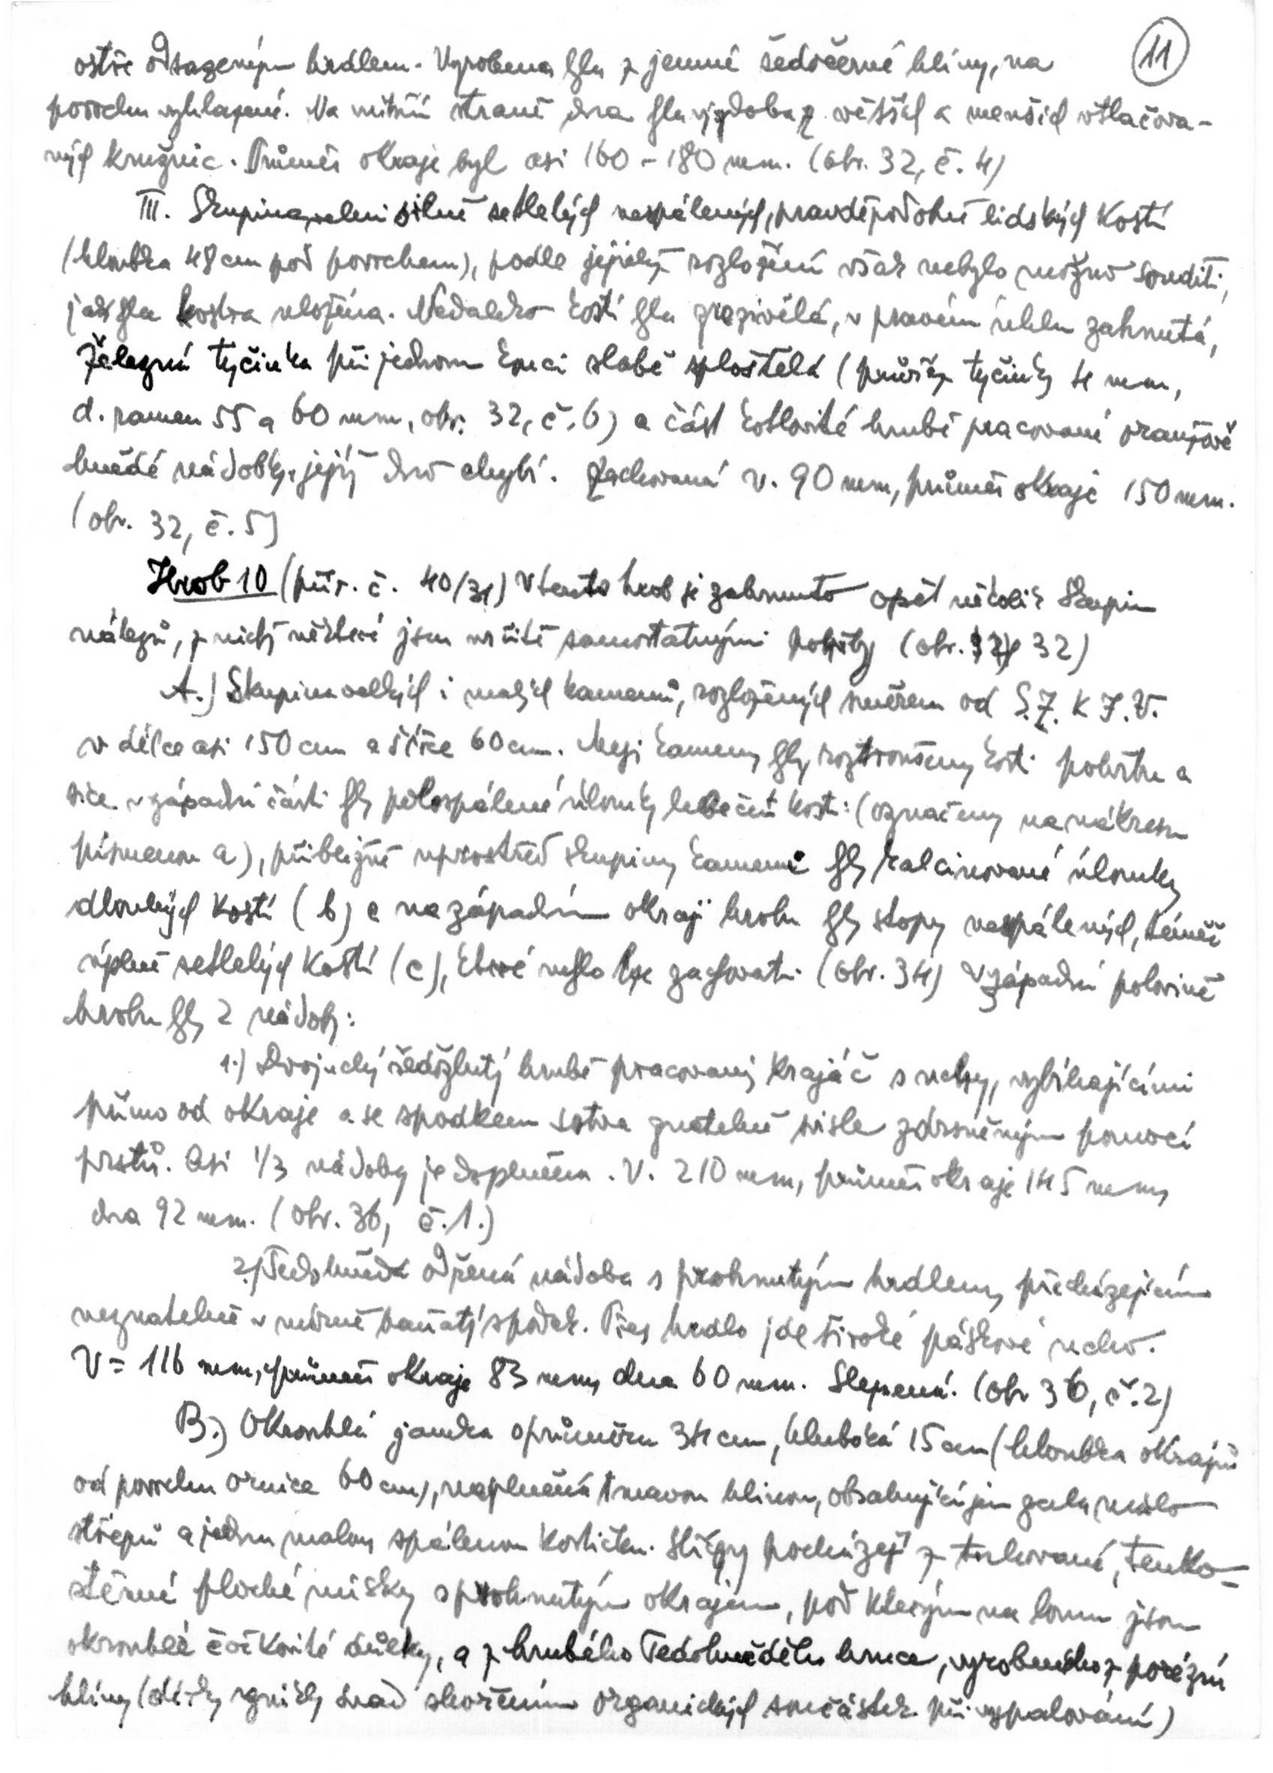 11
ostře odsazeným hrdlem. Vyrobena byla z jemné šedočerné hlíny, na
povrchu vyhlazené. Na vnitřní straně dna byla výzdoba z větších a menších vtlačova-
ných kružnic. Průměr okraje byl asi 160 - 180 mm. (obr. 32, č. 4)
III. Skupina velmi silně setlelých nespálených, pravděpodobně lidských kostí
(hloubka 48 cm pod povrchem), podle jejichž rozložení však nebylo možno souditi,
jak byla kostra uložena. Nedaleko kostí byla zrezivělá, v pravém úhlu zahnutá,
železná tyčinka při jednom konci slabě sploštělá (průřez tyčinky 4 mm,
d. ramen 55 a 60 mm, obr. 32, č. 6) a část kotlovité hrubě pracované oranžově
hnědé nádobky, jejíž dno chybí. Zachovaná v. 90 mm, průměr okraje 150 mm.
(obr. 32, č. 5)
Hrob 10 (přír. č. 40/31) V tento hrob je zahrnuto opět několik skupin
nálezů, z nichž některé jsou určitě samostatnými pohřby (obr. 32)
A.) Skupina velkých i malých kamenů, rozložených směrem od S.Z. k J.V.
v délce asi 150 cm a šířce 60 cm. Mezi kameny byly roztroušeny kosti pohřbu a
sice v západní části byly polospálené úlomky lebečních kostí: (označeny na nákresu
písmenem a), přibližně uprostřed skupiny kamenů byly kalcinované úlomky
dlouhých kostí (b) a na západním okraji hrobu byly stopy nespálených, téměř
úplně setlelých kostí (c), které nešlo lze zachovati. (obr. 34) V západní polovině
hrobu byly 2 nádoby:
1.) Dvojuchý šedožlutý hrubě pracovaný krajáč s uchy, vybíhajícími
přímo od okraje a se spodkem sotva znatelně svisle zdrsněným pomocí
prstů. Asi 1/3 nádoby je doplněna. V. 210 mm, průměr okraje 145 mm,
dna 92 mm. (obr. 36, č. 1.)
2.) Šedohnědá odřená nádoba s prohnutým hrdlem, přecházejícím
neznatelně v mírně baňatý spodek. Přes hrdlo jde široké páskové ucho.
V = 116 mm, průměr okraje 83 mm, dna 60 mm. Slepená. (obr 36, č. 2)
B.) Okrouhlá jamka o průměru 34 cm, hluboká 15 cm (hloubka okrajů
od povrchu ornice 60 cm), naplněná tmavou hlínou, obsahující jen zcela málo
střepů a jednu malou spálenou kostičku. Střepy pocházejí z tuhované, tenko-
stěnné ploché misky s prohnutým okrajem, pod kterým na lomu jsou
okrouhlé čočkovité důlky, a z hrubého šedohnědého hrnce, vyrobeného z porézní
hlíny (dírky vznikly snad shořením organických součástek při vypalování)